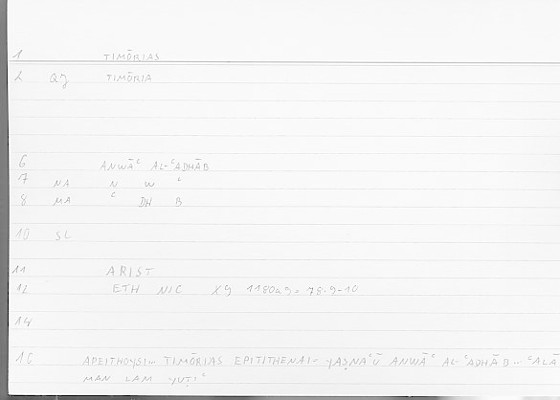 1 TIMŌRIAS
2 QJ TIMŌRIA
6 ANWĀʿ AL-ʿADHĀB
7 NA N W ʿ
8 MA ʿ DH B
10 SL
11 ARIST
12 ETH NIC X9 1180a9 = 78.9-10
14
15 APEITHOYSI... TIMŌRIAS EPITITHENAI = YAṢNAʿŪ ANWĀʿ AL-ʿADHĀB... ʿALĀ
MAN LAM YUṬIʿ